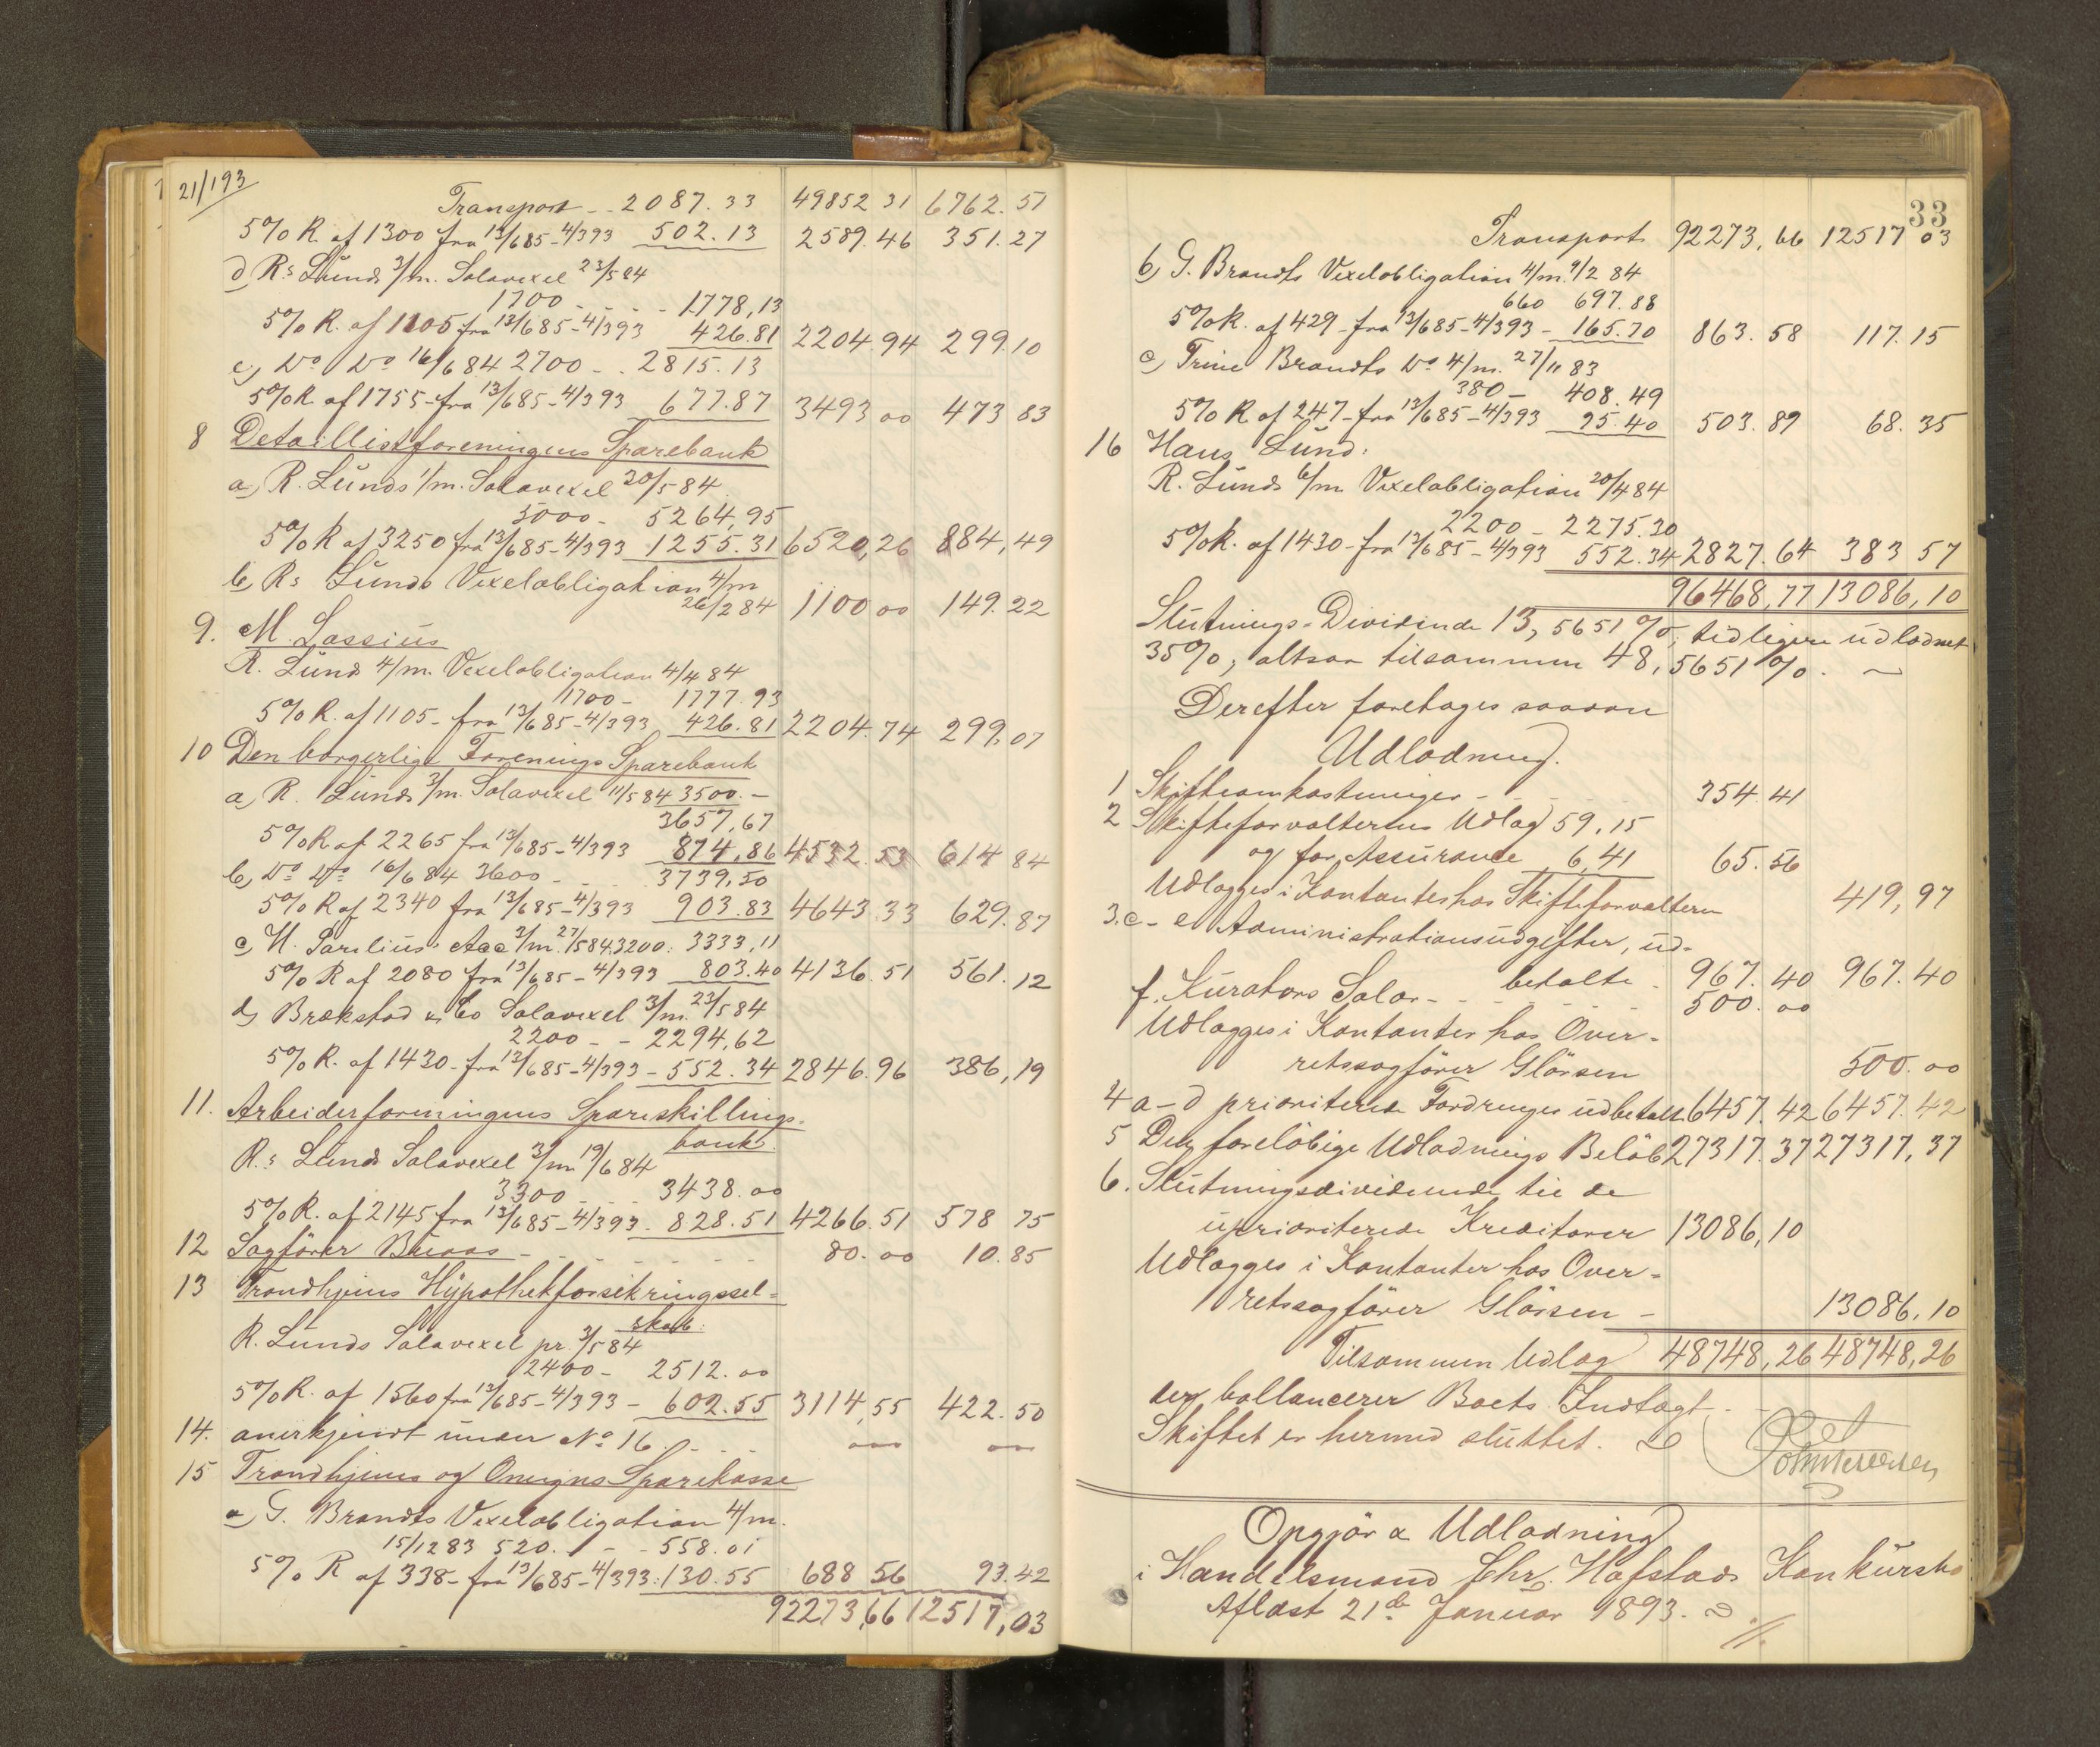 21/193
Transport - - 2087.33 49852 31 6762.51
5% R. af 1300 fra 13/685-4/393 502.13 2589.46 351.27
d) Rs Lunds 3/m. Solavexel 23/5 84
1700 - - - 1778,13
5% R. af 1105 fra 13/685-4/393 426.81 2204.94 299.10
e) Do Do 16/6 84 2700 - . 2815.13
5% R. af 1755 - fra 13/685-4/393 677.87 3493 00 473 83
8 Detaillistforeningens Sparebank
a) R. Lunds 1/m. Solavexel 20/5 84
5000 - 5264,95
5% R af 3250 fra 13/685-4/393 1255.31 6520,26 884,49
b) Rs Lunds Vexelobligation 4/m
26/2 84 1100 00 149.22
9. M. Lassius
R. Lund 4/m. Vexelobligation 4/4 84
1700 - 1777.93
5% R. af 1105 - fra 13/685-4/393 426.81 2204.74 299,07
10 Den borgerlige Forenings Sparebank
a) R. Lunds 3/m. Solavexel 11/5 84 3500. -
3657,67
5% R af 2265 fra 13/685-4/393 874,86 4532.53 614 84
b) Do Do 16/6 84 3600 - . . 3739,50
5% R af 2340 fra 13/685-4/393 903.83 4643.33 629.87
c) H. Parelius's Acc 3/m. 27/5 84 3200. 3333,11
5% R af 2080 fra 13/685-4/393 803.40 4136.51 561.12
d) Brækstad & Co Solavexel 3/m. 23/5 84
2200 - - 2294,62
5% R. af 1430 - fra 13/685-4/393 - 552.34 2846.96 386,19
11. Arbeiderforeningens Spareskillings-
bank.
R.s Lunds Solavexel 3/m 19/6 84
3300 - - - 3438.00
5% R. af 2145 fra 13/685-4/393 - 828.51 4266.51 578 75
12 Sagfører Buaas - - - 80.00 10.85
13 Trondhjems Hypothekforsikringssel=
skab:
R. Lunds Solavexel pr. 3/5 84
2400 - 2512.00
5% R. af 1560 fra 13/685-4/393 - 602.55 3114,55 422.50
14. anerkjendt under No 16 - - -
15 Trondhjems og Omegns Sparekasse
a) G. Brandts Vexelobligation 4/m.
15/12 83 520. - - 558.01
5% R af 338 - fra 13/685-4/393 : 130.55 688 56 93.42
92273,66 12517,03
33
Transport 92273,66 12517 03
b) G. Brandts Vexelobligation 4/m. 9/2 84
660 697.88
5% R. af 429 - fra 13/685-4/393 - 165.70 863.58 117.15
c) Trine Brandts Do 4/m. 27/11 83
380 - 408.49
5% R af 247 - fra 13/685-4/393 95.40 503.89 68.35
16 Hans Lund:
R. Lunds 6/m Vexelobligation 20/4 84
2200 - 2275.30
5% R. af 1430 - fra 13/685-4/393 552.34 2827.64 383 57
96468,77 13086,10
Slutnings-Dividende 13,5651 %, tidligere udlodnet
35%, altsaa tilsammen 48,5651 %. -
Derefter foretages saadan
Udlodning.
1 Skifteomkostninger - - - 354.41
2 Skifteforvalterens Udlæg 59,15
og for Assurance 6,41 65.56
Udlægges i Kontanter hos Skifteforvalteren 419,97
3. c - e Administrationsudgifter, ud-
betalte - 967.40 967.40
f. Kurators Salær - - - 500.00
Udlægges i Kontanter hos Over-
retssagfører Glørsen 500.00
4 a - d prioriterede Fordringer udbetalt 6457.42 6457.42
5 Det foreløbige Udlodnings Beløb 27317.37 27317,37
6. Slutningsdividende til de
uprioriterede Kreditorer 13086,10
Udlægges i Kontanter hos Over-
retssagfører Glørsen - 13086,10
Tilsammen Udlæg 48748,26 48748,26
der ballancerer Boets Indtægt. -
Skiftet er hermed sluttet.
Opgjør & Udlodning
i Handelsmand Chr. Hafstads Konkursbo
Aflæst 21de Januar 1893.